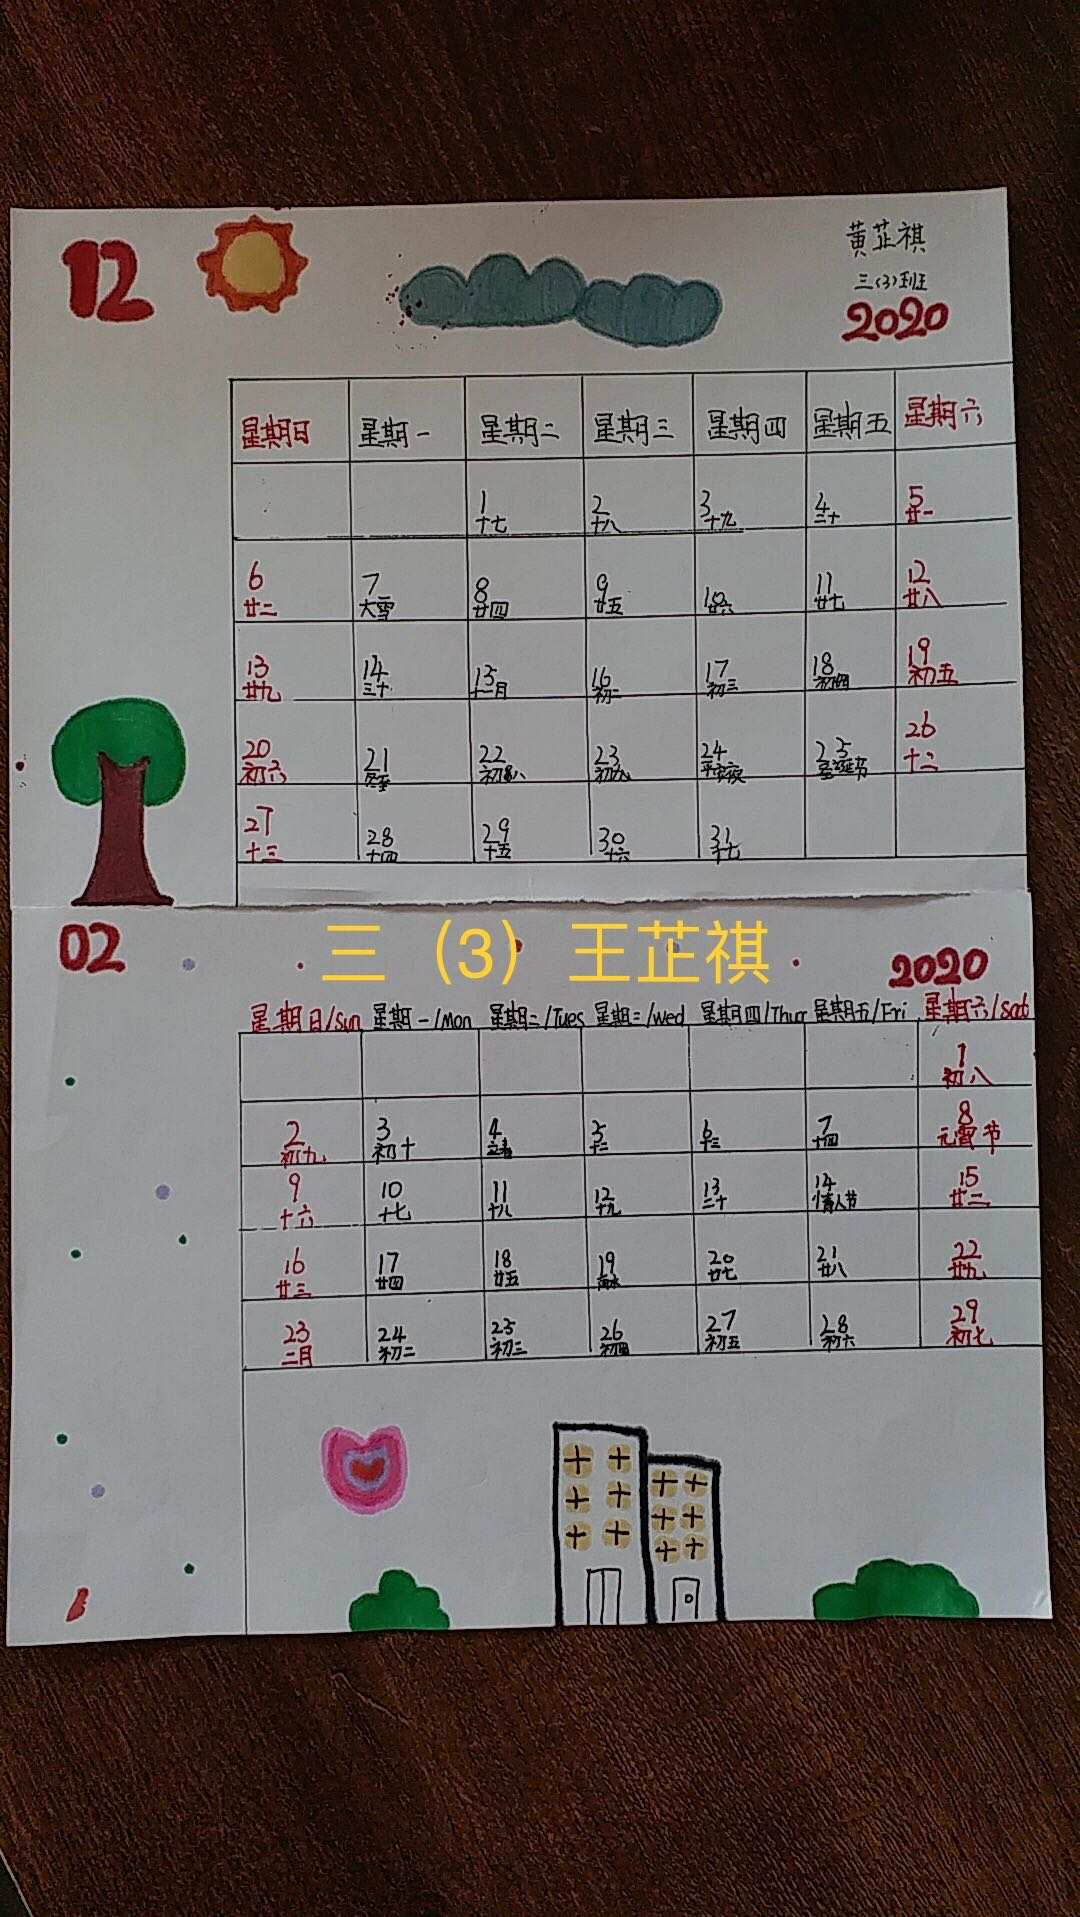 12
黄芷祺
三(3)班
2020
星期日 星期一 星期二 星期三 星期四 星期五 星期六
1 2 3 4 5
十七 十八 十九 二十 廿一
6 7 8 9 10 11 12
廿二 大雪 廿四 廿五 廿六 廿七 廿八
13 14 15 16 17 18 19
廿九 三十 十一月 初二 初三 初四 初五
20 21 22 23 24 25 26
初六 冬至 初八 初九 平安夜 圣诞节 十二
27 28 29 30 31
十三 十四 十五 十六 十七
三（3）王芷祺
02
2020
星期日/Sun 星期一/Mon 星期二/Tues 星期三/Wed 星期四/Thur 星期五/Fri 星期六/Sat
1
初八
2 3 4 5 6 7 8
初九 初十 立春 十二 十三 十四 元宵节
9 10 11 12 13 14 15
十六 十七 十八 十九 二十 情人节 廿二
16 17 18 19 20 21 22
廿三 廿四 廿五 雨水 廿七 廿八 廿九
23 24 25 26 27 28 29
二月 初二 初三 初四 初五 初六 初七